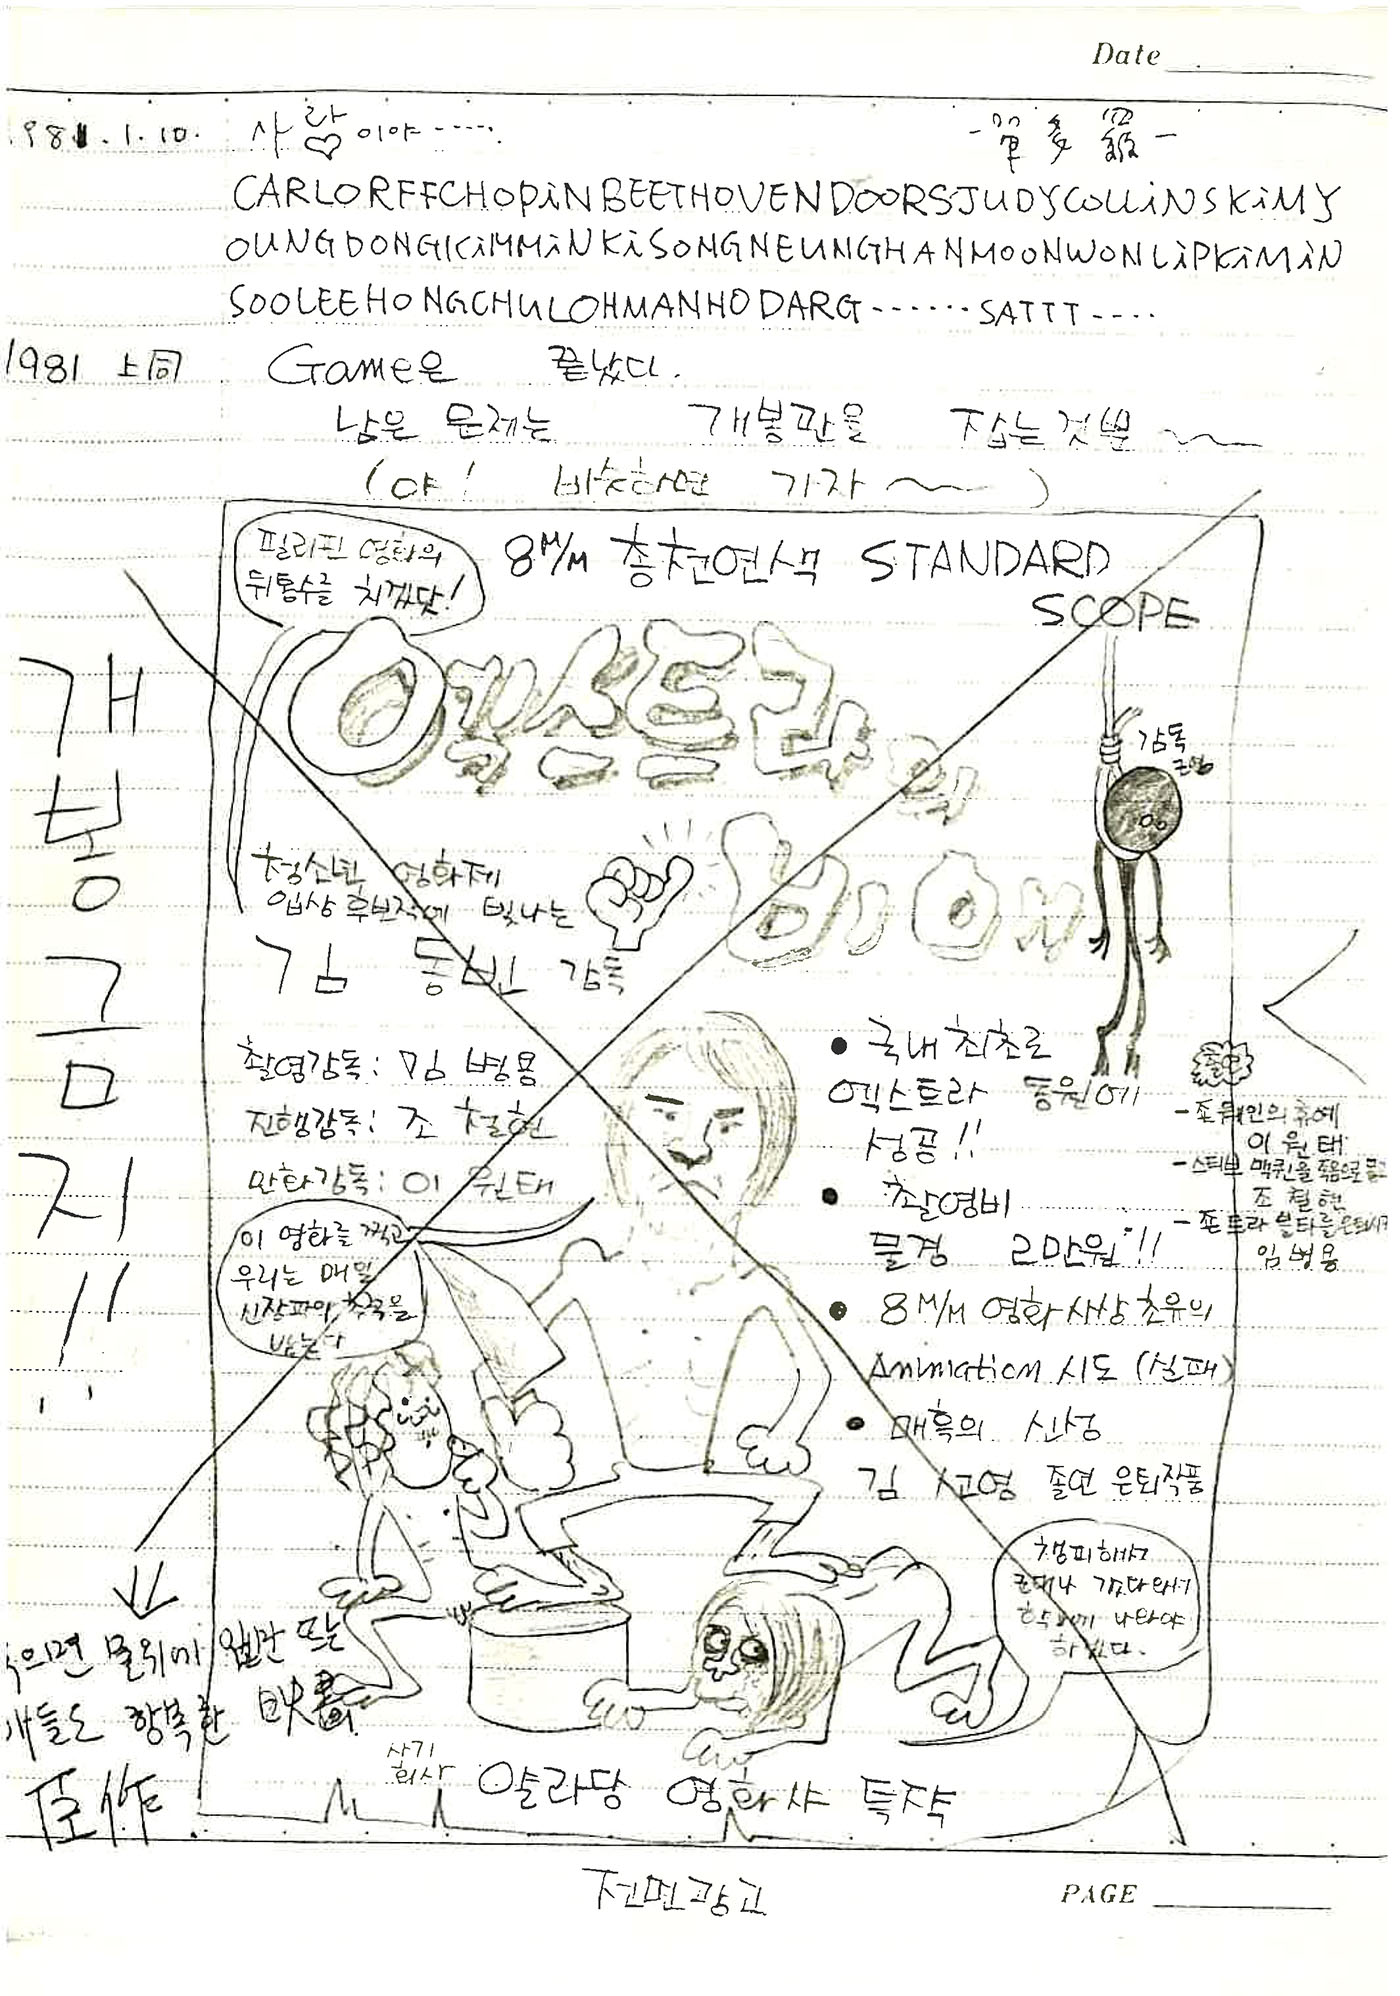 Date
1981.1.10. 사랑♡이야.....
CARLORFFCHOPiNBEETHOVENDOORSJUDYCOLLiNSKiMY
OUNGDONGKiMMiNKiSONGNEUNGHANMOONWONLiPKiMiN
SOOLEEHONGCHULOHMANHODARG-------SATTT----
1981 上同 Game은 끝났다.
남은 문제는 개봉관을 잡는것뿐
(야! 비슷하면 기자~)
개봉금지!!
필리핀 영화의
뒤통수를 치겠닷!
8M/M 총천연색 STANDARD
SCOPE
엑스트라의
비애
감독
청소년 영화제
입상 후보작에 빛나는
김 동빈 감독
촬영감독: 임 병용
진행감독: 조 철현
만화감독: 이 원태
이 영화를 찍고
우리는 매일
신장파의
받는다
• 국내 최초로
엑스트라 동원에
성공!!
• 촬영비
물경 2만원!!
• 8M/M 영화사상 초유의
Animation 시도 (실패)
• 매혹의 신성
김 졸연 은퇴작품
졸연
- 존 웨인의 후예
이 원태
- 스티브 맥퀸을 죽음으로
조 철현
- 존 트라볼타를
임 병용
챙피하다
나와야
하겠다.
물위에
행복한 映畵
사기
회사
얄라당 영화사 특작
巨作
전면광고
PAGE